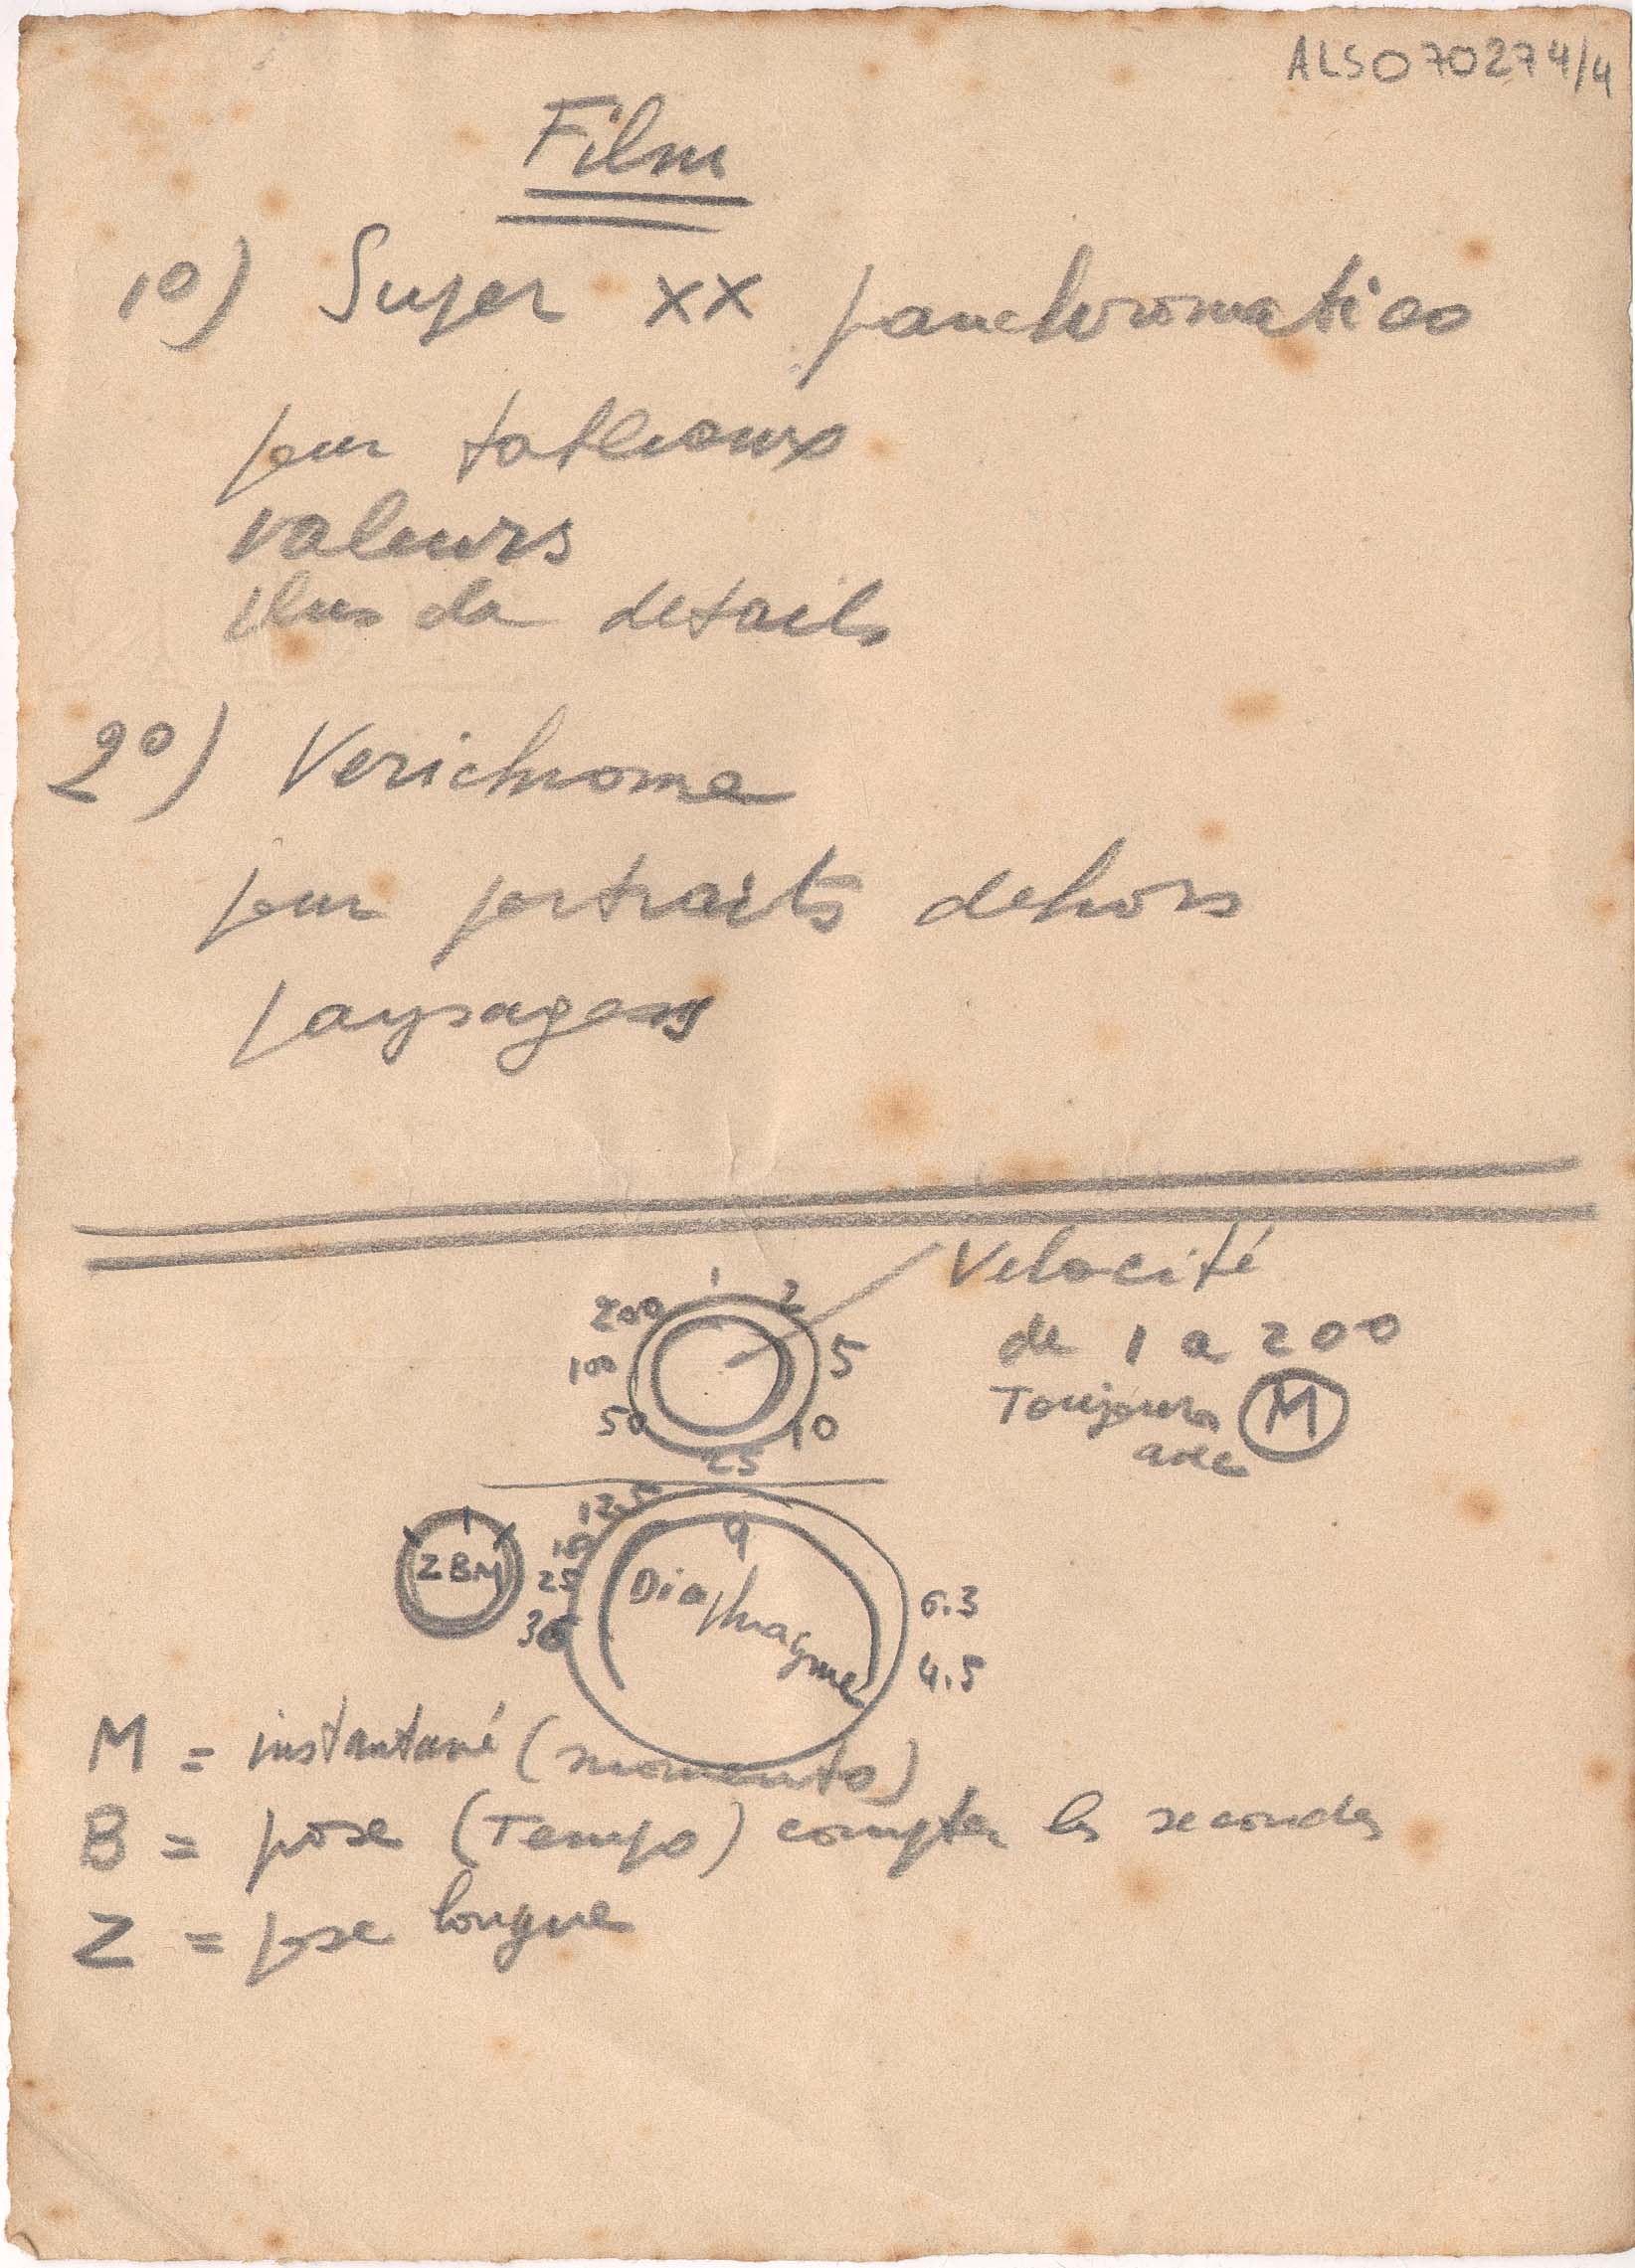 ALSO70274/4
Film
1º) Super XX panchromatico
pour tableaux
valeurs
plus de details
2º) Verichrome
pour portraits dehors
paysages
Velocité
de 1 a 200
Toujours M
avec
1 2 5 10 25 50 100 200
Z B M
12.5 18 25 36
9
6.3
4.5
Diaphragme
M = instantané (momento)
B = pose (Tempo) compter les secondes
Z = pose longue